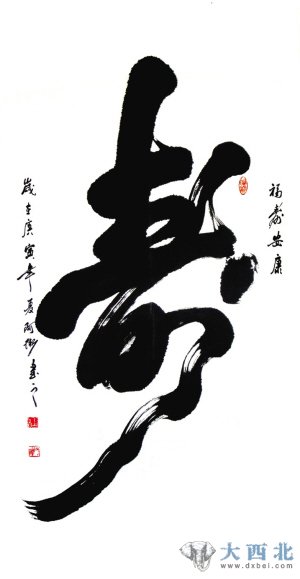 福壽安康
寿
歲在庚寅年夏
大西北
www.dxbei.com